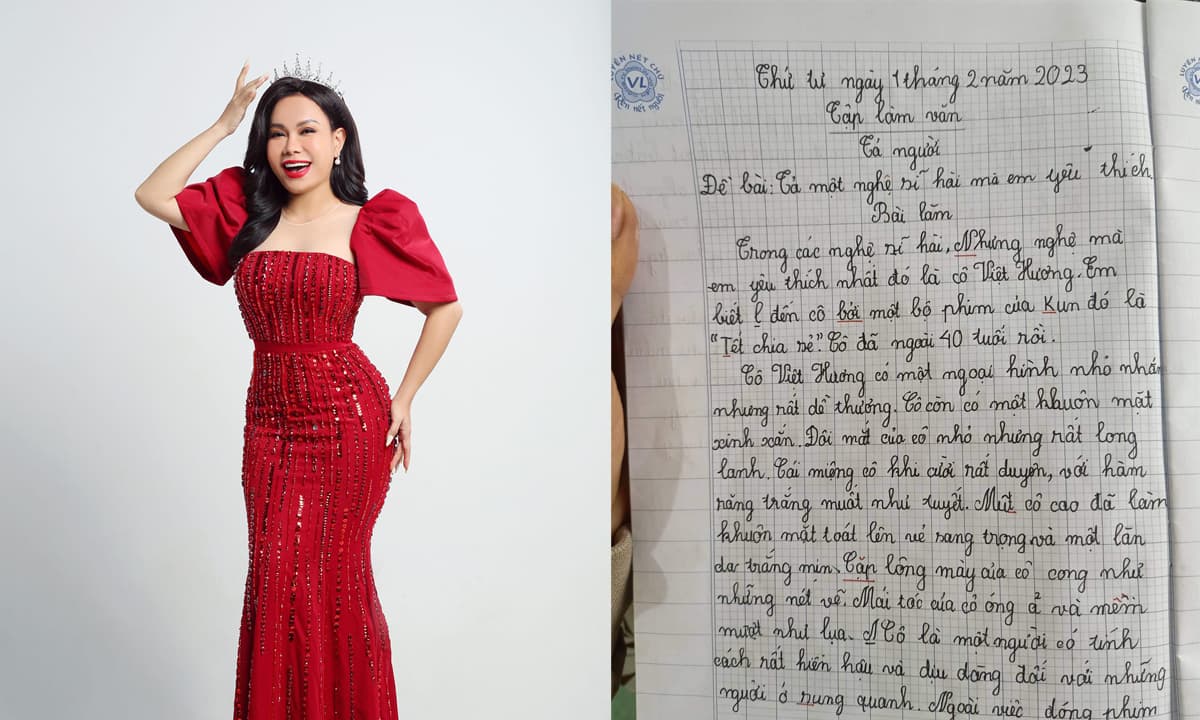 LUYỆN NÉT CHỮ
VL
Rèn nết người
Thứ tư ngày 1 tháng 2 năm 2023
Tập làm văn
Tả người
Đề bài: Tả một nghệ sĩ hài mà em yêu thích.
Bài làm
Trong các nghệ sĩ hài, Nhưng nghệ mà
em yêu thích nhất đó là cô Việt Hương. Em
biết đến cô bởi một bộ phim của Kun đó là
"Tết chia rẻ". Cô đã ngoài 40 tuổi rồi.
Cô Việt Hương có một ngoại hình nhỏ nhắn
nhưng rất dễ thương. Cô còn có một khuôn mặt
xinh xắn. Đôi mắt của cô nhỏ nhưng rất long
lanh. Cái miệng cô khi cười rất duyên, với hàm
răng trắng muốt như tuyết. Mũi cô cao đã làm
khuôn mặt toát lên vẻ sang trọng và một làn
da trắng mịn. Cặp lông mày của cô cong như
những nét vẽ. Mái tóc của cô óng ả và mềm
mượt như lụa. Cô là một người có tính
cách rất hiền hậu và dịu dàng đối với những
người ở xung quanh. Ngoài việc đóng phim